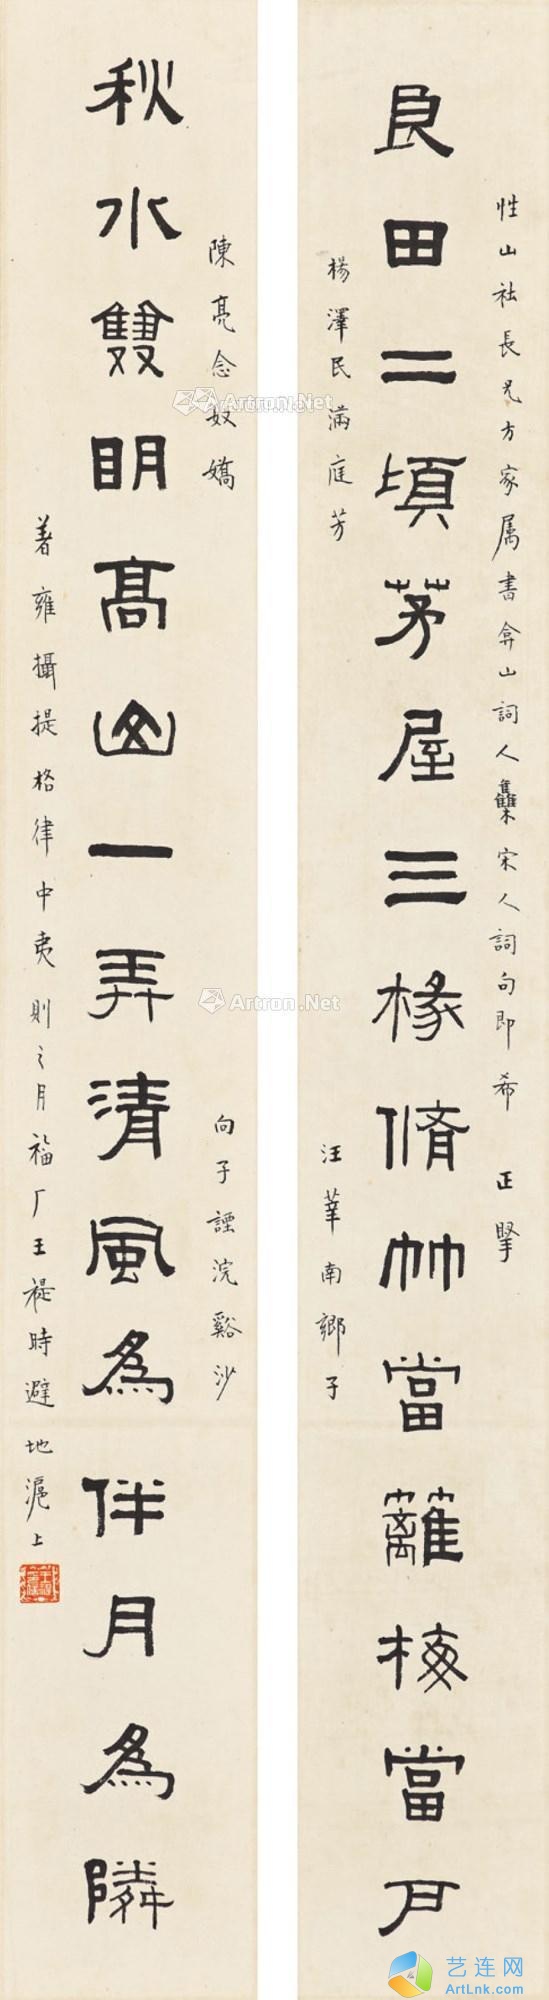 性山社長兄方家属書弇山詞人雧宋人詞句即希 正
良田二頃茅屋三椽脩竹當籬梅當戶
楊澤民滿庭芳
汪莘南鄉子
陳亮念奴嬌
向子諲浣谿沙
秋水雙眀高山一弄清風為伴月為隣
著雍攝提格律中夷則之月福厂王禔時避地滬上
Artron.Net
Artron.Net
艺连网
ArtLnk.Com